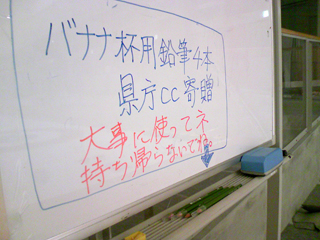 バナナ杯用鉛筆4本
県庁CC寄贈
大事に使ってネ
持ち帰らないでね。